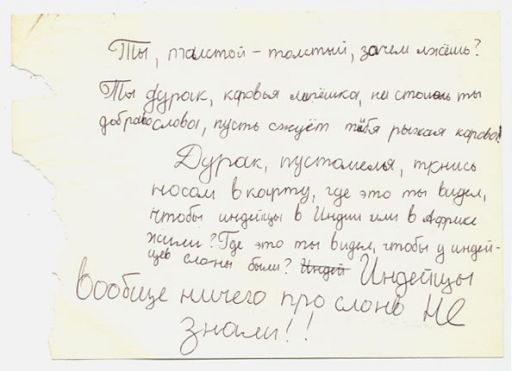 Ты, толстой - толстый, зачем лжёшь?
Ты дурак, каровья лепёшка, не стоишь ты
доброво слова, пусть сжуёт тебя рыжая карова!
Дурак, пустомеля, ткнись
носом в карту, где это ты видел,
чтобы индейцы в Индии или в Африке
жили? Где это ты видел, чтобы у индей-
цев слоны были? Индей Индейцы
вообще ничего про слонов не
знали!!